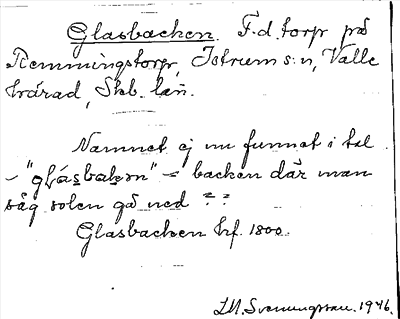 Glasbacken. F.d. torp på
Remmingstorp, Istrum s:n, Valle
härad, Skb. län.
Namnet ej nu funnet i tal
– "glásbakən" = backen där man
såg solen gå ned ??
Glasbacken hf. 1800.
I.M. Svenungsson. 1946.